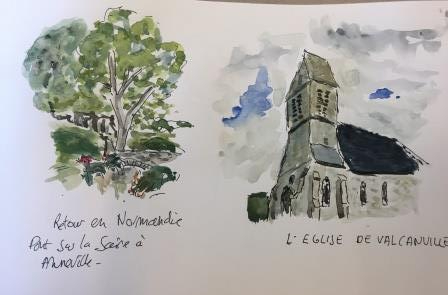 Retour en Normandie
Pont sur la Saire à
Anneville -
L'EGLISE DE VALCANVILLE